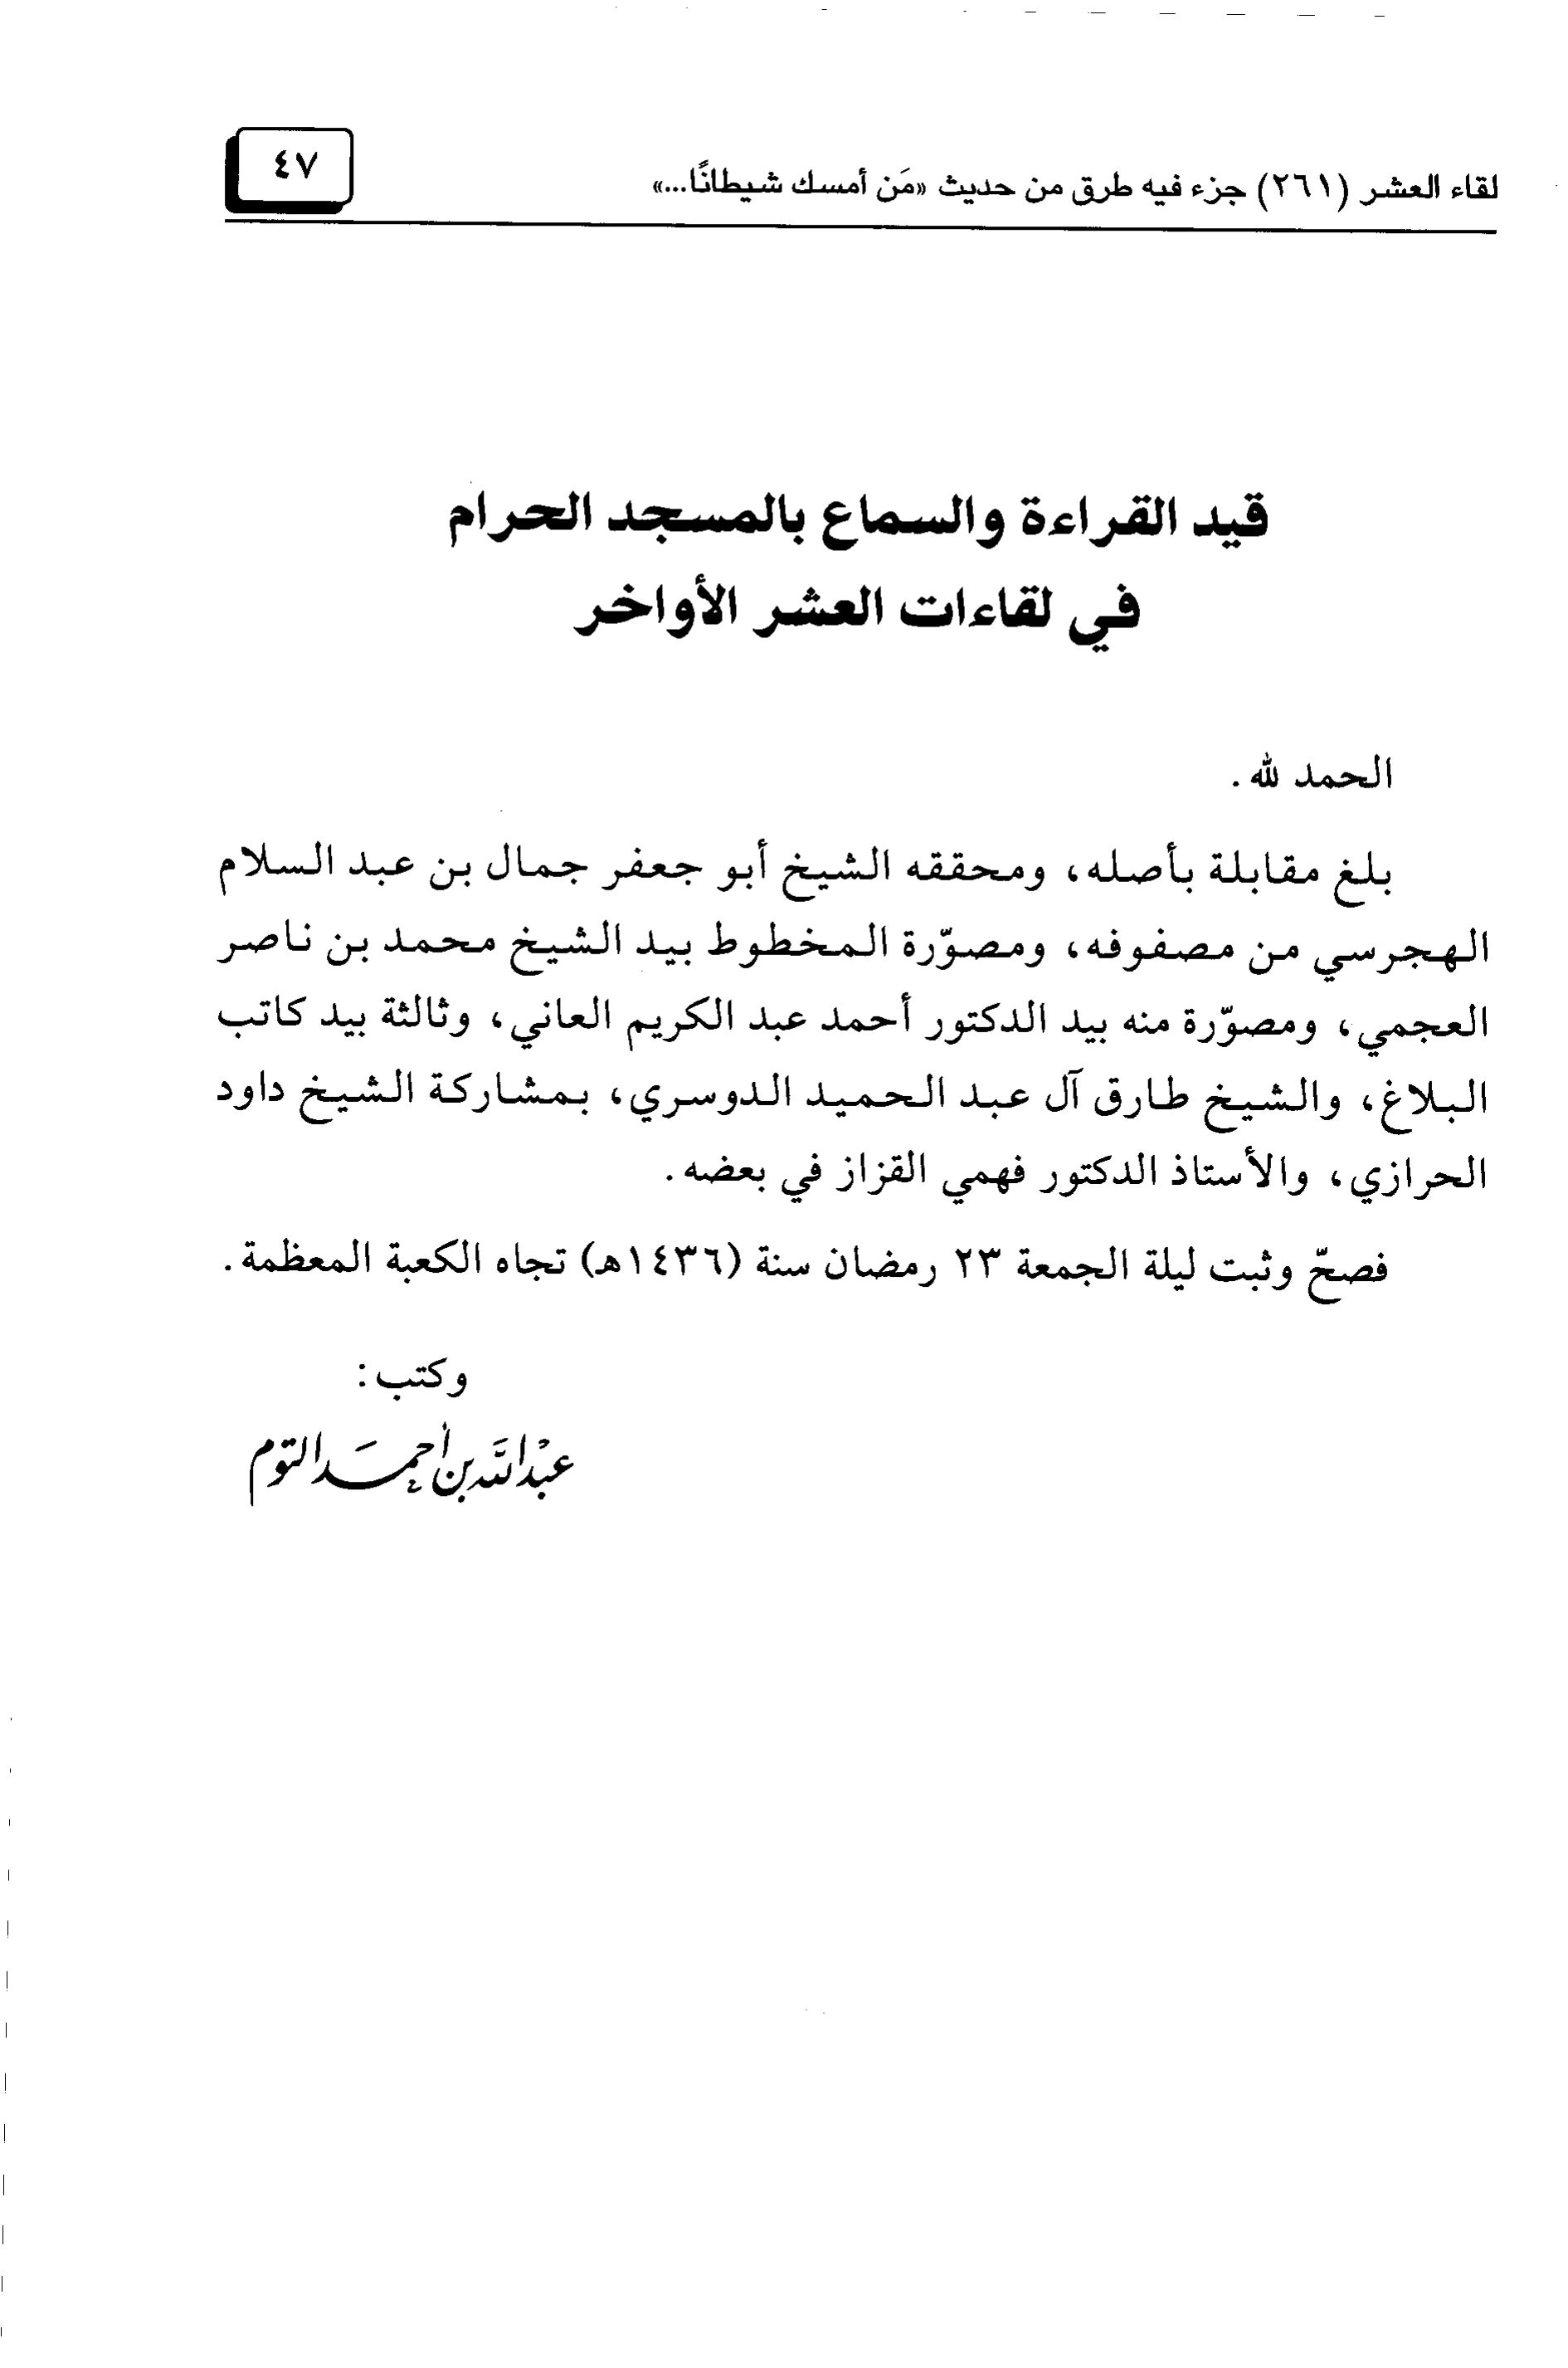 لقاء العشر (٢٦١) جزء فيه طرق من حديث «مَن أمسك شيطانًا...»
٤٧
قيد القراءة والسماع بالمسجد الحرام
في لقاءات العشر الأواخر
الحمد لله.
بلغ مقابلة بأصله، ومحققه الشيخ أبو جعفر جمال بن عبد السلام
الهجرسي من مصفوفه، ومصوّرة المخطوط بيد الشيخ محمد بن ناصر
العجمي، ومصوّرة منه بيد الدكتور أحمد عبد الكريم العاني، وثالثة بيد كاتب
البلاغ، والشيخ طارق آل عبد الحميد الدوسري، بمشاركة الشيخ داود
الحرازي، والأستاذ الدكتور فهمي القزاز في بعضه.
فصحّ وثبت ليلة الجمعة ٢٣ رمضان سنة (١٤٣٦هـ) تجاه الكعبة المعظمة.
وكتب:
عبْد اللَّه بن أحمَد التوم